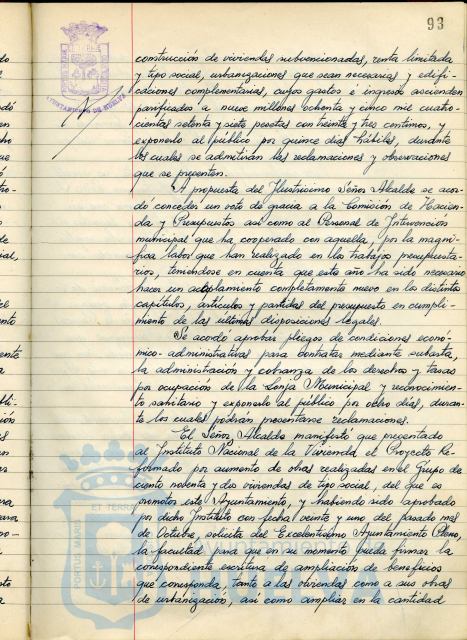 93
AYUNTAMIENTO DE HUELVA
construcción de viviendas subvencionadas, renta limitada
y tipo social, urbanizaciones que sean necesarias y edifi-
caciones complementarias, cuyos gastos é ingresos ascienden
parificados a nueve millones ochenta y cinco mil cuatro-
cientas setenta y siete pesetas con treinta y tres centimos, y
exponerlo al público por quince dias hábiles, durante
los cuales se admitirán las reclamaciones y observaciones
que se presenten.
A propuesta del Ilustrisimo Señor Alcalde se acor-
dó conceder un voto de gracia a la Comisión de Hacien-
da y Presupuestos así como al Personal de Intervención
municipal que ha cooperado con aquella, por la magni-
fica labor que han realizado en los trabajos presupuesta-
rios, teniendose en cuenta que este año ha sido necesario
hacer un acoplamiento completamente nuevo en los distintos
capitulos, artículos y partidas del presupuesto en cumpli-
miento de las ultimas disposiciones legales.
Se acodó aprobar pliegos de condiciones econó-
mico-administrativas para contratar mediante subasta,
la administración y cobranza de los derechos y tasas
por ocupación de la Lonja Municipal y reconocimien-
to sanitario y exponerlo al público por ocho dias, duran-
te los cuales podrán presentarse reclamaciones.
El Señor Alcalde manifestó que presentado
al Instituto Nacional de la Vivienda el Proyecto Re-
formado por aumento de obras realizadas en el Grupo de
ciento noventa y dos viviendas de tipo social, del que es
promotor este Ayuntamiento, y habiendo sido aprobado
por dicho Instituto con fecha veinte y uno del pasado mes
de Octubre, solicita del Excelentisimo Ayuntamiento Pleno,
la facultad para que en su momento pueda firmar la
correspondiente escritura de ampliación de beneficios
que corresponda, tanto a las viviendas como a sus obras
de urbanización, así como ampliar en la cantidad